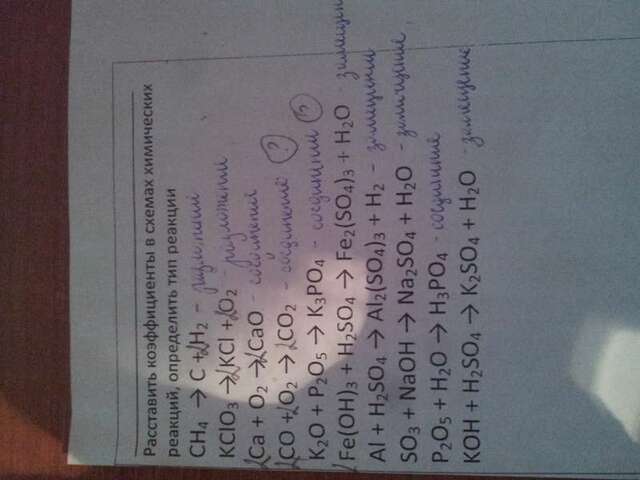 Расставить коэффициенты в схемах химических
реакций, определить тип реакции
CH4 → C + 2H2 – разложении
KClO3 → 2KCl + 2O2 – разложении
2Ca + O2 → 2CaO – соединении
2CO + 2O2 → 2CO2 – соединение ?
K2O + P2O5 → K3PO4 – соединении ?
2Fe(OH)3 + H2SO4 → Fe2(SO4)3 + H2O – замещен
Al + H2SO4 → Al2(SO4)3 + H2 – замещении
SO3 + NaOH → Na2SO4 + H2O – замищение
P2O5 + H2O → H3PO4 – соединение
KOH + H2SO4 → K2SO4 + H2O – замещение